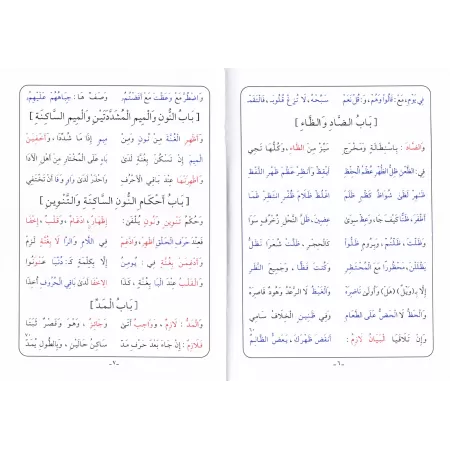 فِي يَوْمِ، مَعْ: قَالُوا وَهُمْ، وَ: قُلْ نَعَمْ سَبِّحْهُ، لَا تُزِغْ قُلُوبَ، فَالْتَقَمْ
[ بَابُ الضَّادِ وَالظَّاءِ ]
وَالضَّادَ: بِاسْتِطَالَةٍ وَمَخْرَجِ مَيِّزْ مِنَ الظَّاءِ، وَكُلُّهَا تَجِي
فِي: الظَّعْنِ ظِلُّ الظُّهْرِ عُظْمُ الْحِفْظِ أَيْقِظْ وَأَنْظِرْ عَظْمِ ظَهْرِ اللَّفْظِ
ظَاهِرْ لَظَى شُوَاظِ كَظْمٍ ظَلَمَا اغْلُظْ ظَلَامَ ظُفْرٍ انْتَظِرْ ظَمَا
أَظْفَرَ، ظَنًّا كَيْفَ جَا، وَعِظْ سِوَى عِضِينَ، ظَلَّ النَّحْلِ زُخْرُفٍ سَوَا
وَظَلْتَ، ظَلْتُمْ، وَبِرُومٍ ظَلُّوا كَالْحِجْرِ، ظَلَّتْ شُعَرَا نَظَلُّ
يَظْلَلْنَ، مَحْظُورًا مَعَ الْمُحْتَظِرِ وَكُنْتَ فَظًّا، وَجَمِيعِ النَّظَرِ
إِلَّا بِـ(وَيْلٌ) (هَلْ) وَأُولَى نَاضِرَهْ وَالْغَيْظُ لَا الرَّعْدُ وَهُودٌ قَاصِرَهْ
وَالْحَظُّ لَا الْحَضُّ عَلَى الطَّعَامِ وَفِي ظَنِينٍ الْخِلَافُ سَامِي
وَإِنْ تَلَاقَيَا الْبَيَانُ لَازِمُ: أَنْقَضَ ظَهْرَكَ، يَعَضُّ الظَّالِمُ
-٦-
وَاضْطُرَّ مَعْ وَعَظْتَ مَعْ أَفَضْتُمُ، وَصَفِّ هَا: جِبَاهُهُمْ عَلَيْهِمُ،
[ بَابُ النُّونِ وَالْمِيمِ الْمُشَدَّدَتَيْنِ وَالْمِيمِ السَّاكِنَةِ ]
وَأَظْهِرِ الْغُنَّةَ مِنْ نُونٍ وَمِنْ مِيمٍ إِذَا مَا شُدِّدَا، وَأَخْفِيَنْ
الْمِيمَ إِنْ تَسْكُنْ بِغُنَّةٍ لَدَى بَاءٍ عَلَى الْمُخْتَارِ مِنْ أَهْلِ الْأَدَا
وَأَظْهِرَنْهَا عِنْدَ بَاقِي الْأَحْرُفِ وَاحْذَرْ لَدَى وَاوٍ وَفَا أَنْ تَخْتَفِي
[ بَابُ أَحْكَامِ النُّونِ السَّاكِنَةِ وَالتَّنْوِينِ ]
وَحُكْمُ تَنْوِينٍ وَنُونٍ يُلْفَى: إِظْهَارٌ، ادْغَامٌ، وَقَلْبٌ، إِخْفَا
فَعِنْدَ حَرْفِ الْحَلْقِ أَظْهِرْ، وَادَّغِمْ فِي اللَّامِ وَالرَّا لَا بِغُنَّةٍ لَزِمْ
وَأَدْغِمَنْ بِغُنَّةٍ فِي: يُومِنُ إِلَّا بِكِلْمَةٍ كَـ: دُنْيَا عَنْوَنُوا
وَالْقَلْبُ عِنْدَ الْبَا بِغُنَّةٍ، كَذَا الِاخْفَا لَدَى بَاقِي الْحُرُوفِ أُخِذَا
[ بَابُ الْمَدِّ ]
وَالْمَدُّ: لَازِمٌ، وَوَاجِبٌ أَتَى وَجَائِزٌ، وَهْوَ وَقَصْرٌ ثَبَتَا
فَلَازِمٌ: إِنْ جَاءَ بَعْدَ حَرْفِ مَدّْ سَاكِنُ حَالَيْنِ، وَبِالطُّولِ يُمَدّْ
-٧-